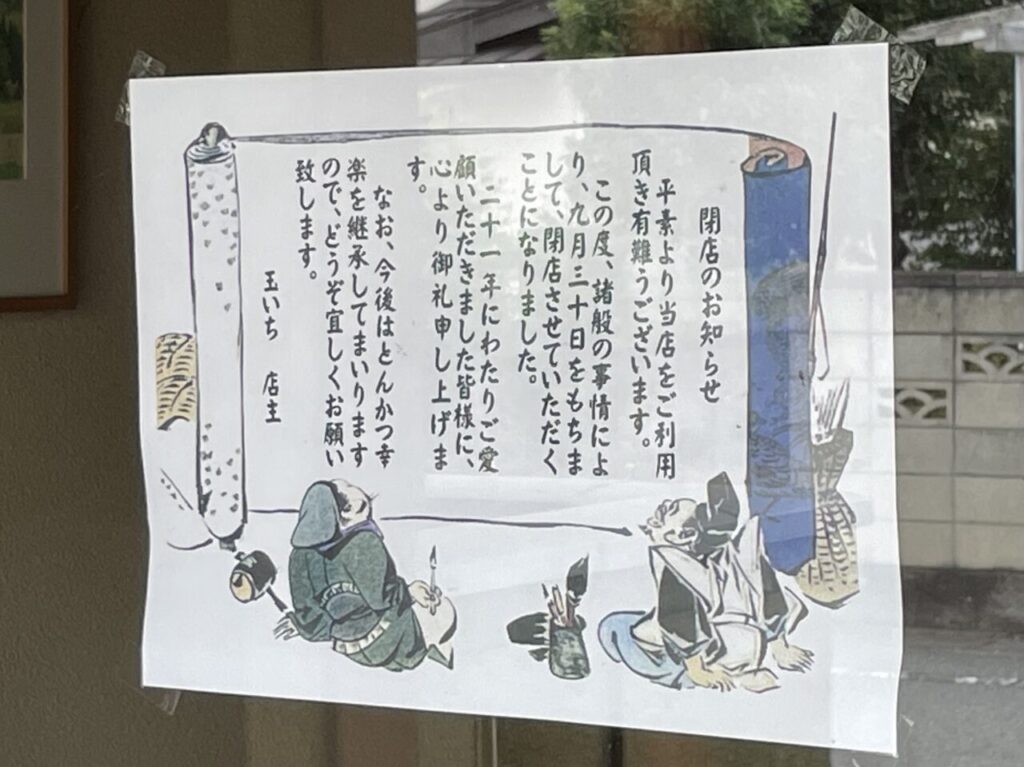 閉店のお知らせ
平素より当店をご利用
頂き有難うございます。
この度、諸般の事情によ
り、九月三十日をもちま
して、閉店させていただく
ことになりました。
二十一年にわたりご愛
顧いただきました皆様に、
心より御礼申し上げま
す。
なお、今後はとんかつ幸
楽を継承してまいります
ので、どうぞ宜しくお願い
致します。
玉いち 店主